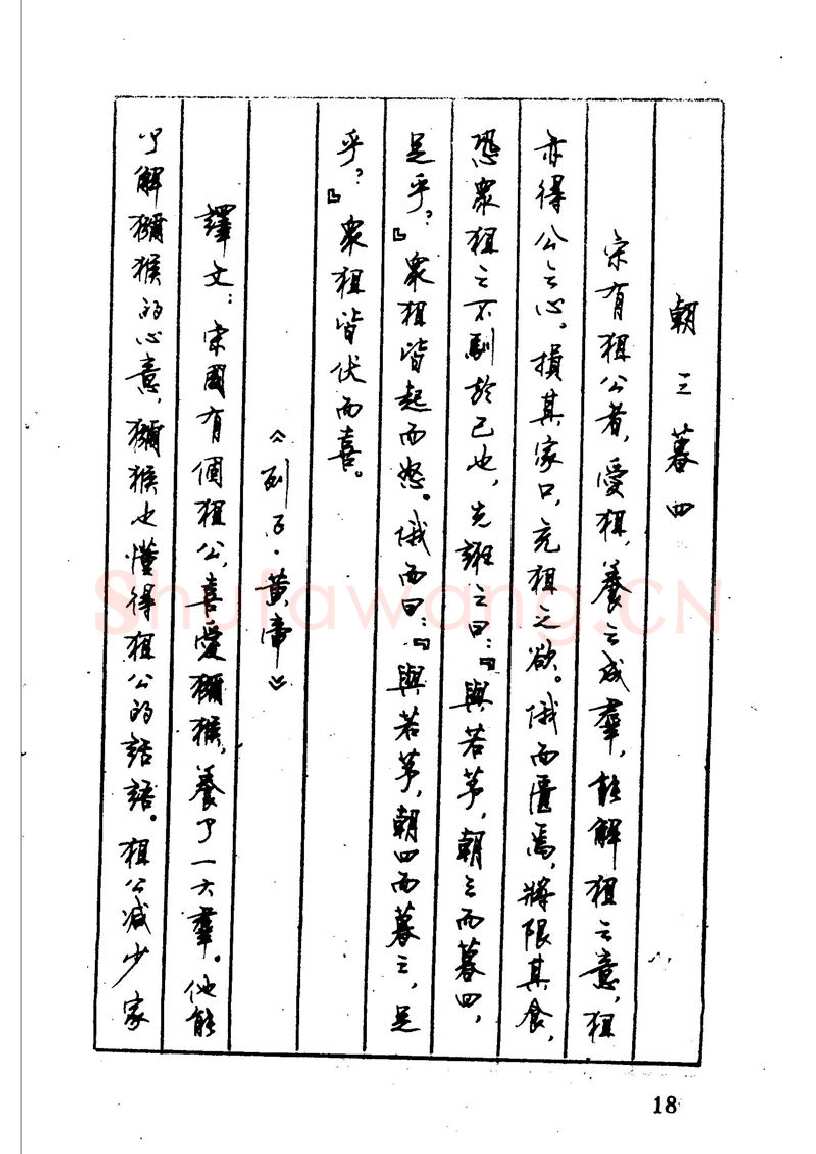 朝三暮四
宋有狙公者，愛狙，養之成羣，能解狙之意，狙
亦得公之心。損其家口，充狙之欲。俄而匱焉，將限其食，
恐衆狙之不馴於己也，先誑之曰：『與若芧，朝三而暮四，
足乎？』衆狙皆起而怒。俄而曰：『與若芧，朝四而暮三，足
乎？』衆狙皆伏而喜。
《列子·黃帝》
譯文：宋國有個狙公，喜愛獼猴，養了一大羣。他能
了解獼猴的心意，獼猴也懂得狙公的話語。狙公減少家
18
Shufawang.CN